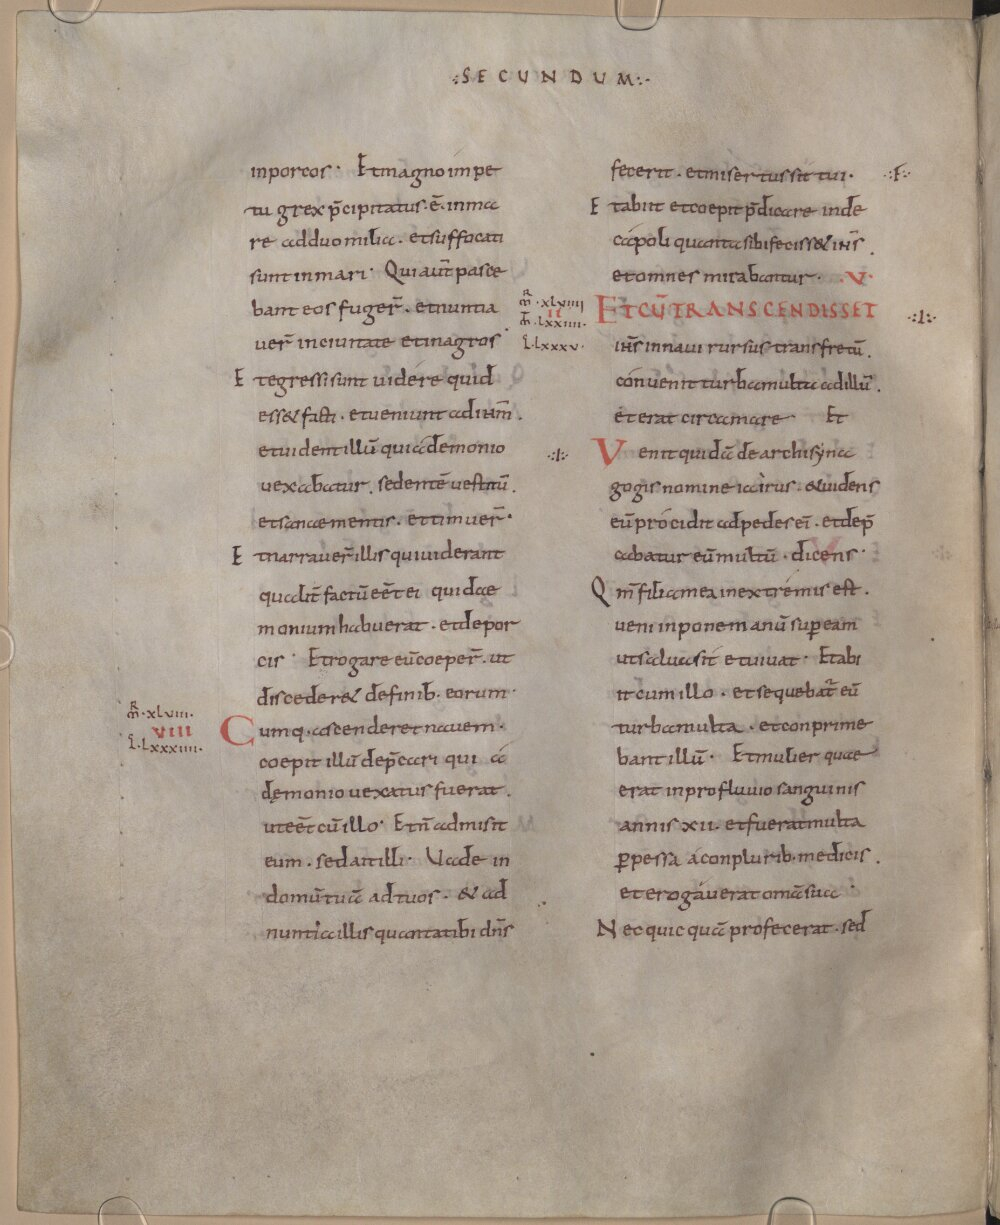 .:SECUNDUM:.
in porcos · Et magno impe
tu grex p̄cipitatus · ē · in ma
re ad duo milia · et suffocati
sunt in mari · Qui aut̄ pasce
bant eos fuger̄ · et nuntia
uer̄ in ciuitate et in agros
Et egressi sunt uidere quid
ess& facti · et ueniunt ad ih̄m ·
et uident illū qui a demonio
uexabatur · sedentē uestitū ·
et sanae mentis · et timuer̄ ·
Et narrauer̄ illis qui uiderant
qualit̄ factū eēt ei qui dae
monium habuerat · et de por
cis · Et rogare eū coeper̄ · ut
disceder& de finib · eorum ·
R̄
m̄ · xlviii ·
VIII
L · lxxxiiii ·
Cumq · ascenderet nauem ·
coepit illū dep̄cari qui a
demonio uexatus fuerat ·
ut eēt cū illo · Et n̄ admisit
eum · sed ait illi · Uade in
domū tuā ad tuos · & ad
nuntia illis quanta tibi dn̄s
fecerit · et misertus sit tui ·
Et abiit et coepit p̄dicare in de
capoli quanta sibi feciss& ih̄s ·
et omnes mirabantur · V ·
R
m̄ · xlviiii
II
m̄ · lxxiiii ·
L · lxxxv ·
ET CŪ TRANSCENDISSET
ih̄s in naui rursus trans fretū ·
conuenit turba multa ad illū ·
et erat circa mare Et
Venit quidā de archisyna
gogis nomine iairus · & uidens
eū procidit ad pedes eī · et dep̄
cabatur eū multū · dicens ·
Qm̄ filia mea in extremis est ·
ueni inpone manū sup̄ eam
ut salua sit et uiuat · Et abi
it cum illo · et sequebat̄ eū
turba multa · et conprime
bant illū · Et mulier quae
erat in profluuio sanguinis
annis xii · et fuerat multa
p̱pessa a conplurib · medicis ·
et erogauerat omā sua ·
Nec quic quā profecerat · sed